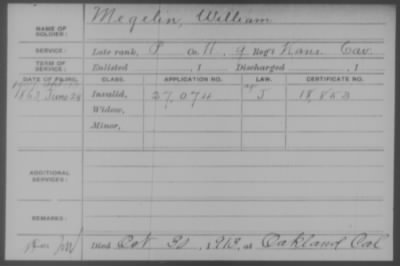 NAME OF SOLDIER: Megelin, William
SERVICE: Late rank, P Co. H, 9 Reg't Kans Cav.
TERM OF SERVICE: Enlisted , 1 Discharged , 1
DATE OF FILING. CLASS. APPLICATION NO. LAW. CERTIFICATE NO.
1863 June 28 Invalid, 27,074 J 18,853
Widow,
Minor,
ADDITIONAL SERVICES:
REMARKS:
Died Oct 31, 1913, at Oakland Cal